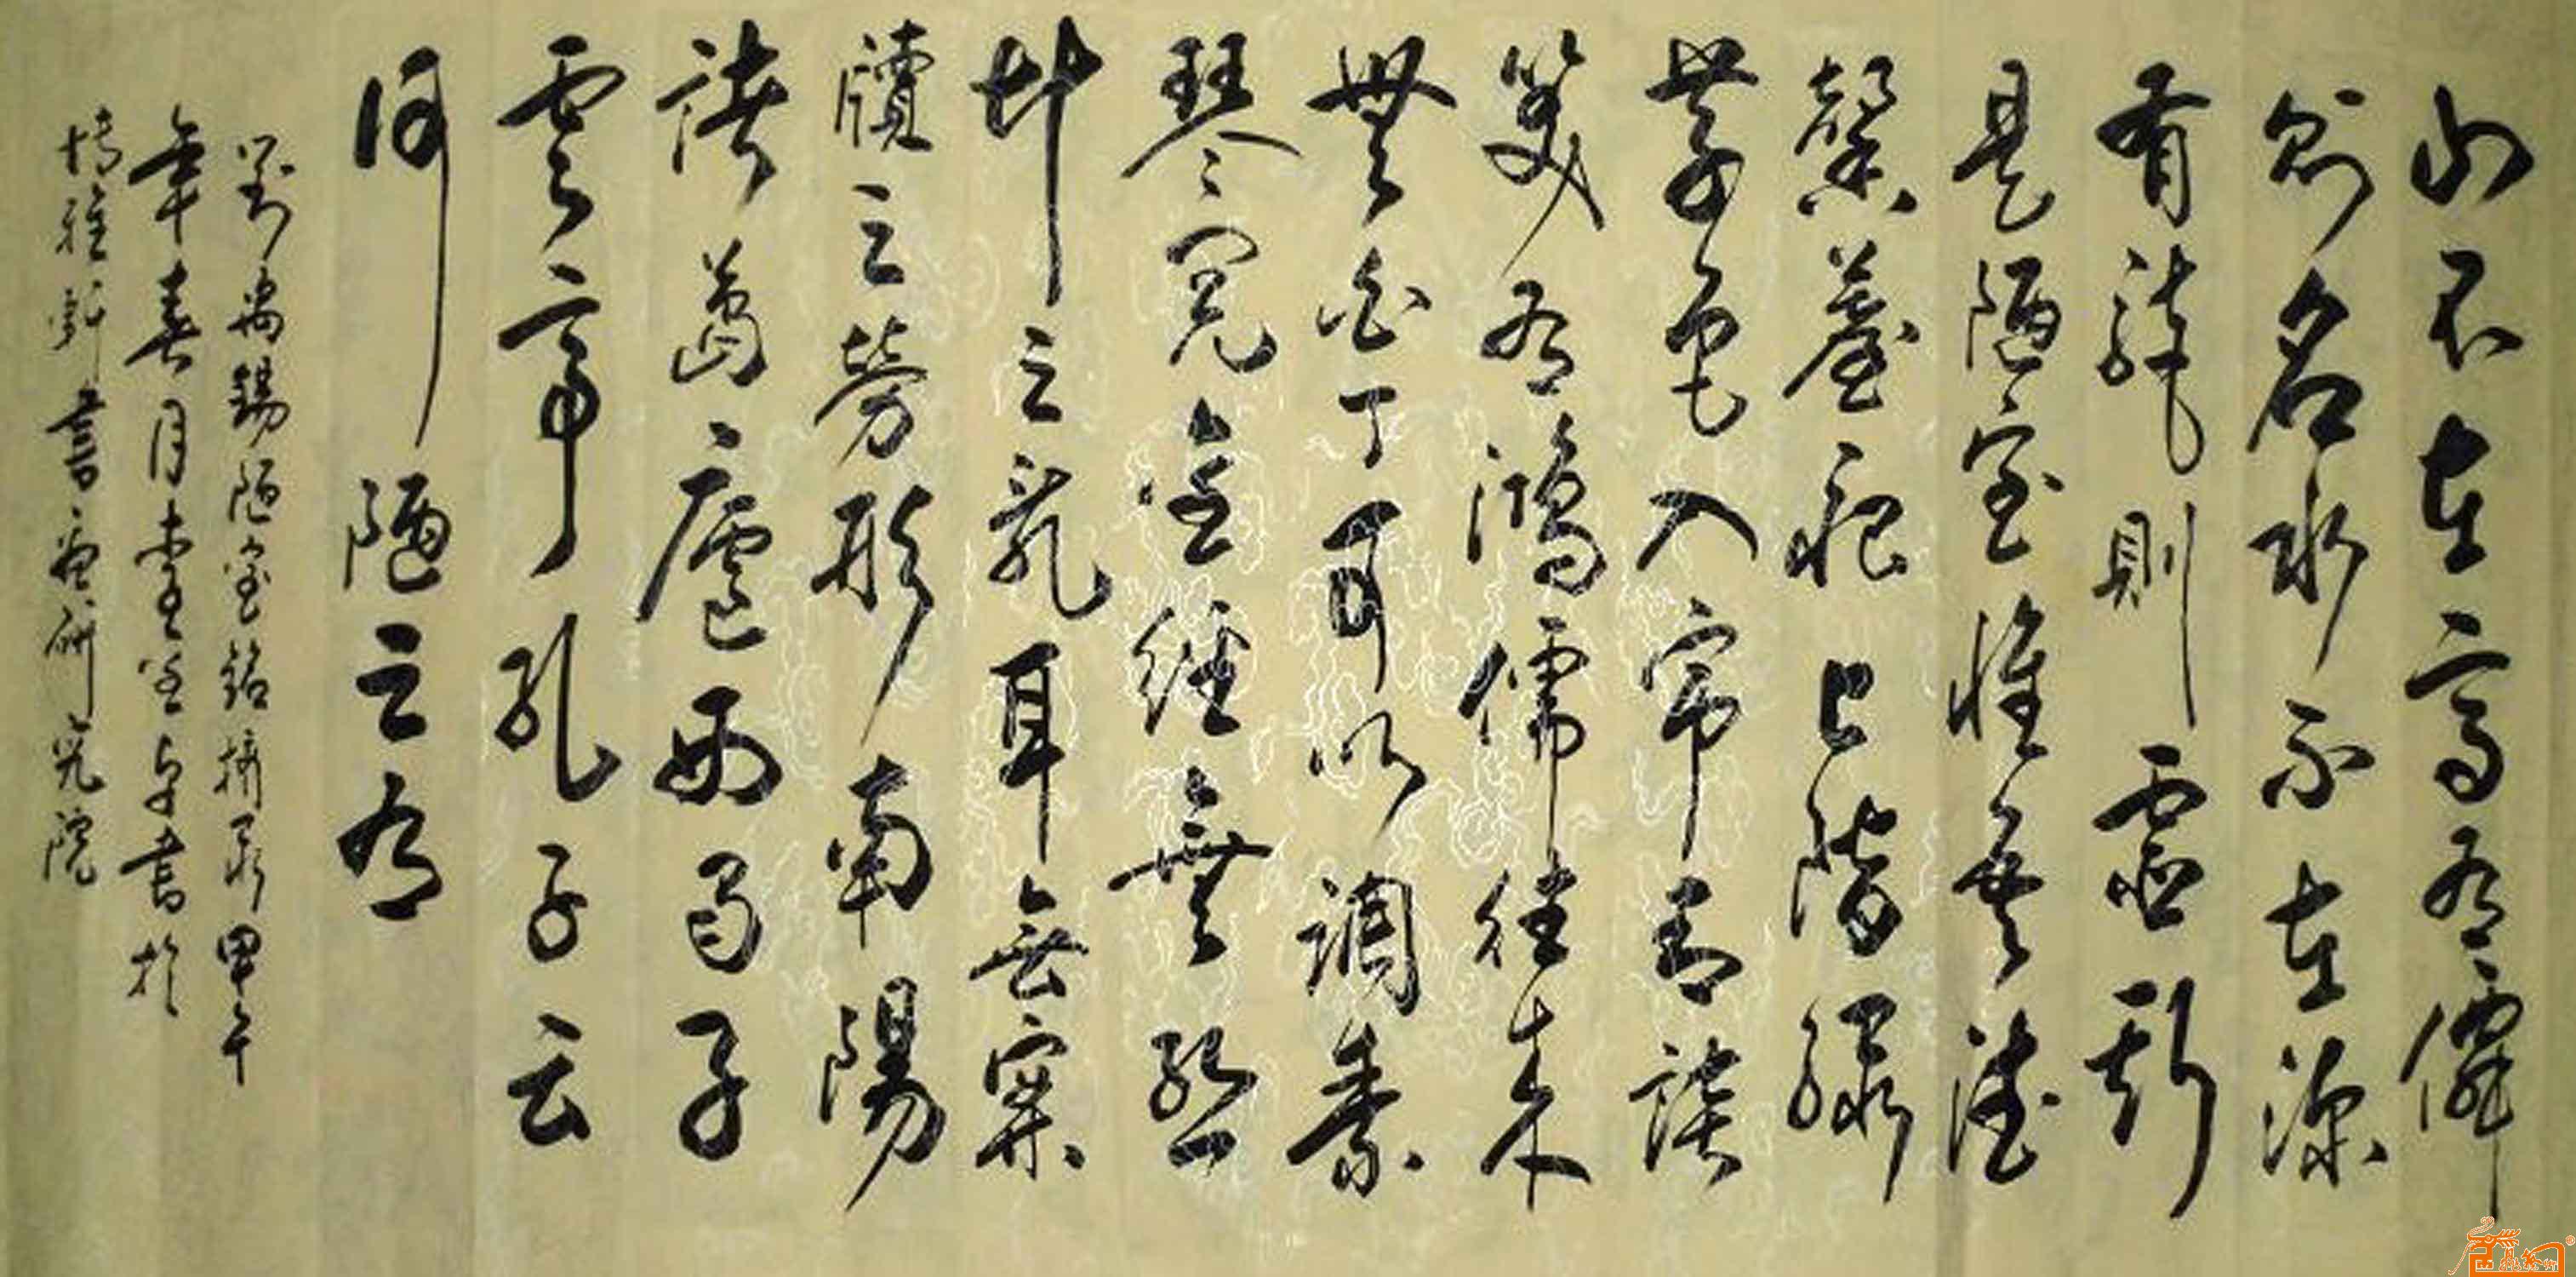 山不在高有僊
則名水不在深
有龍則靈斯
是陋室惟吾德
馨薹痕上階綠
草色入簾青談
笑有鴻儒往来
無白丁可以調素
琴閱金經無絲
竹之亂耳無案
牘之勞形南陽
諸葛廬西蜀子
雲亭孔子云
何陋之有
劉禹錫陋室銘 甲午
年春月 書於
情雅軒書画研究院